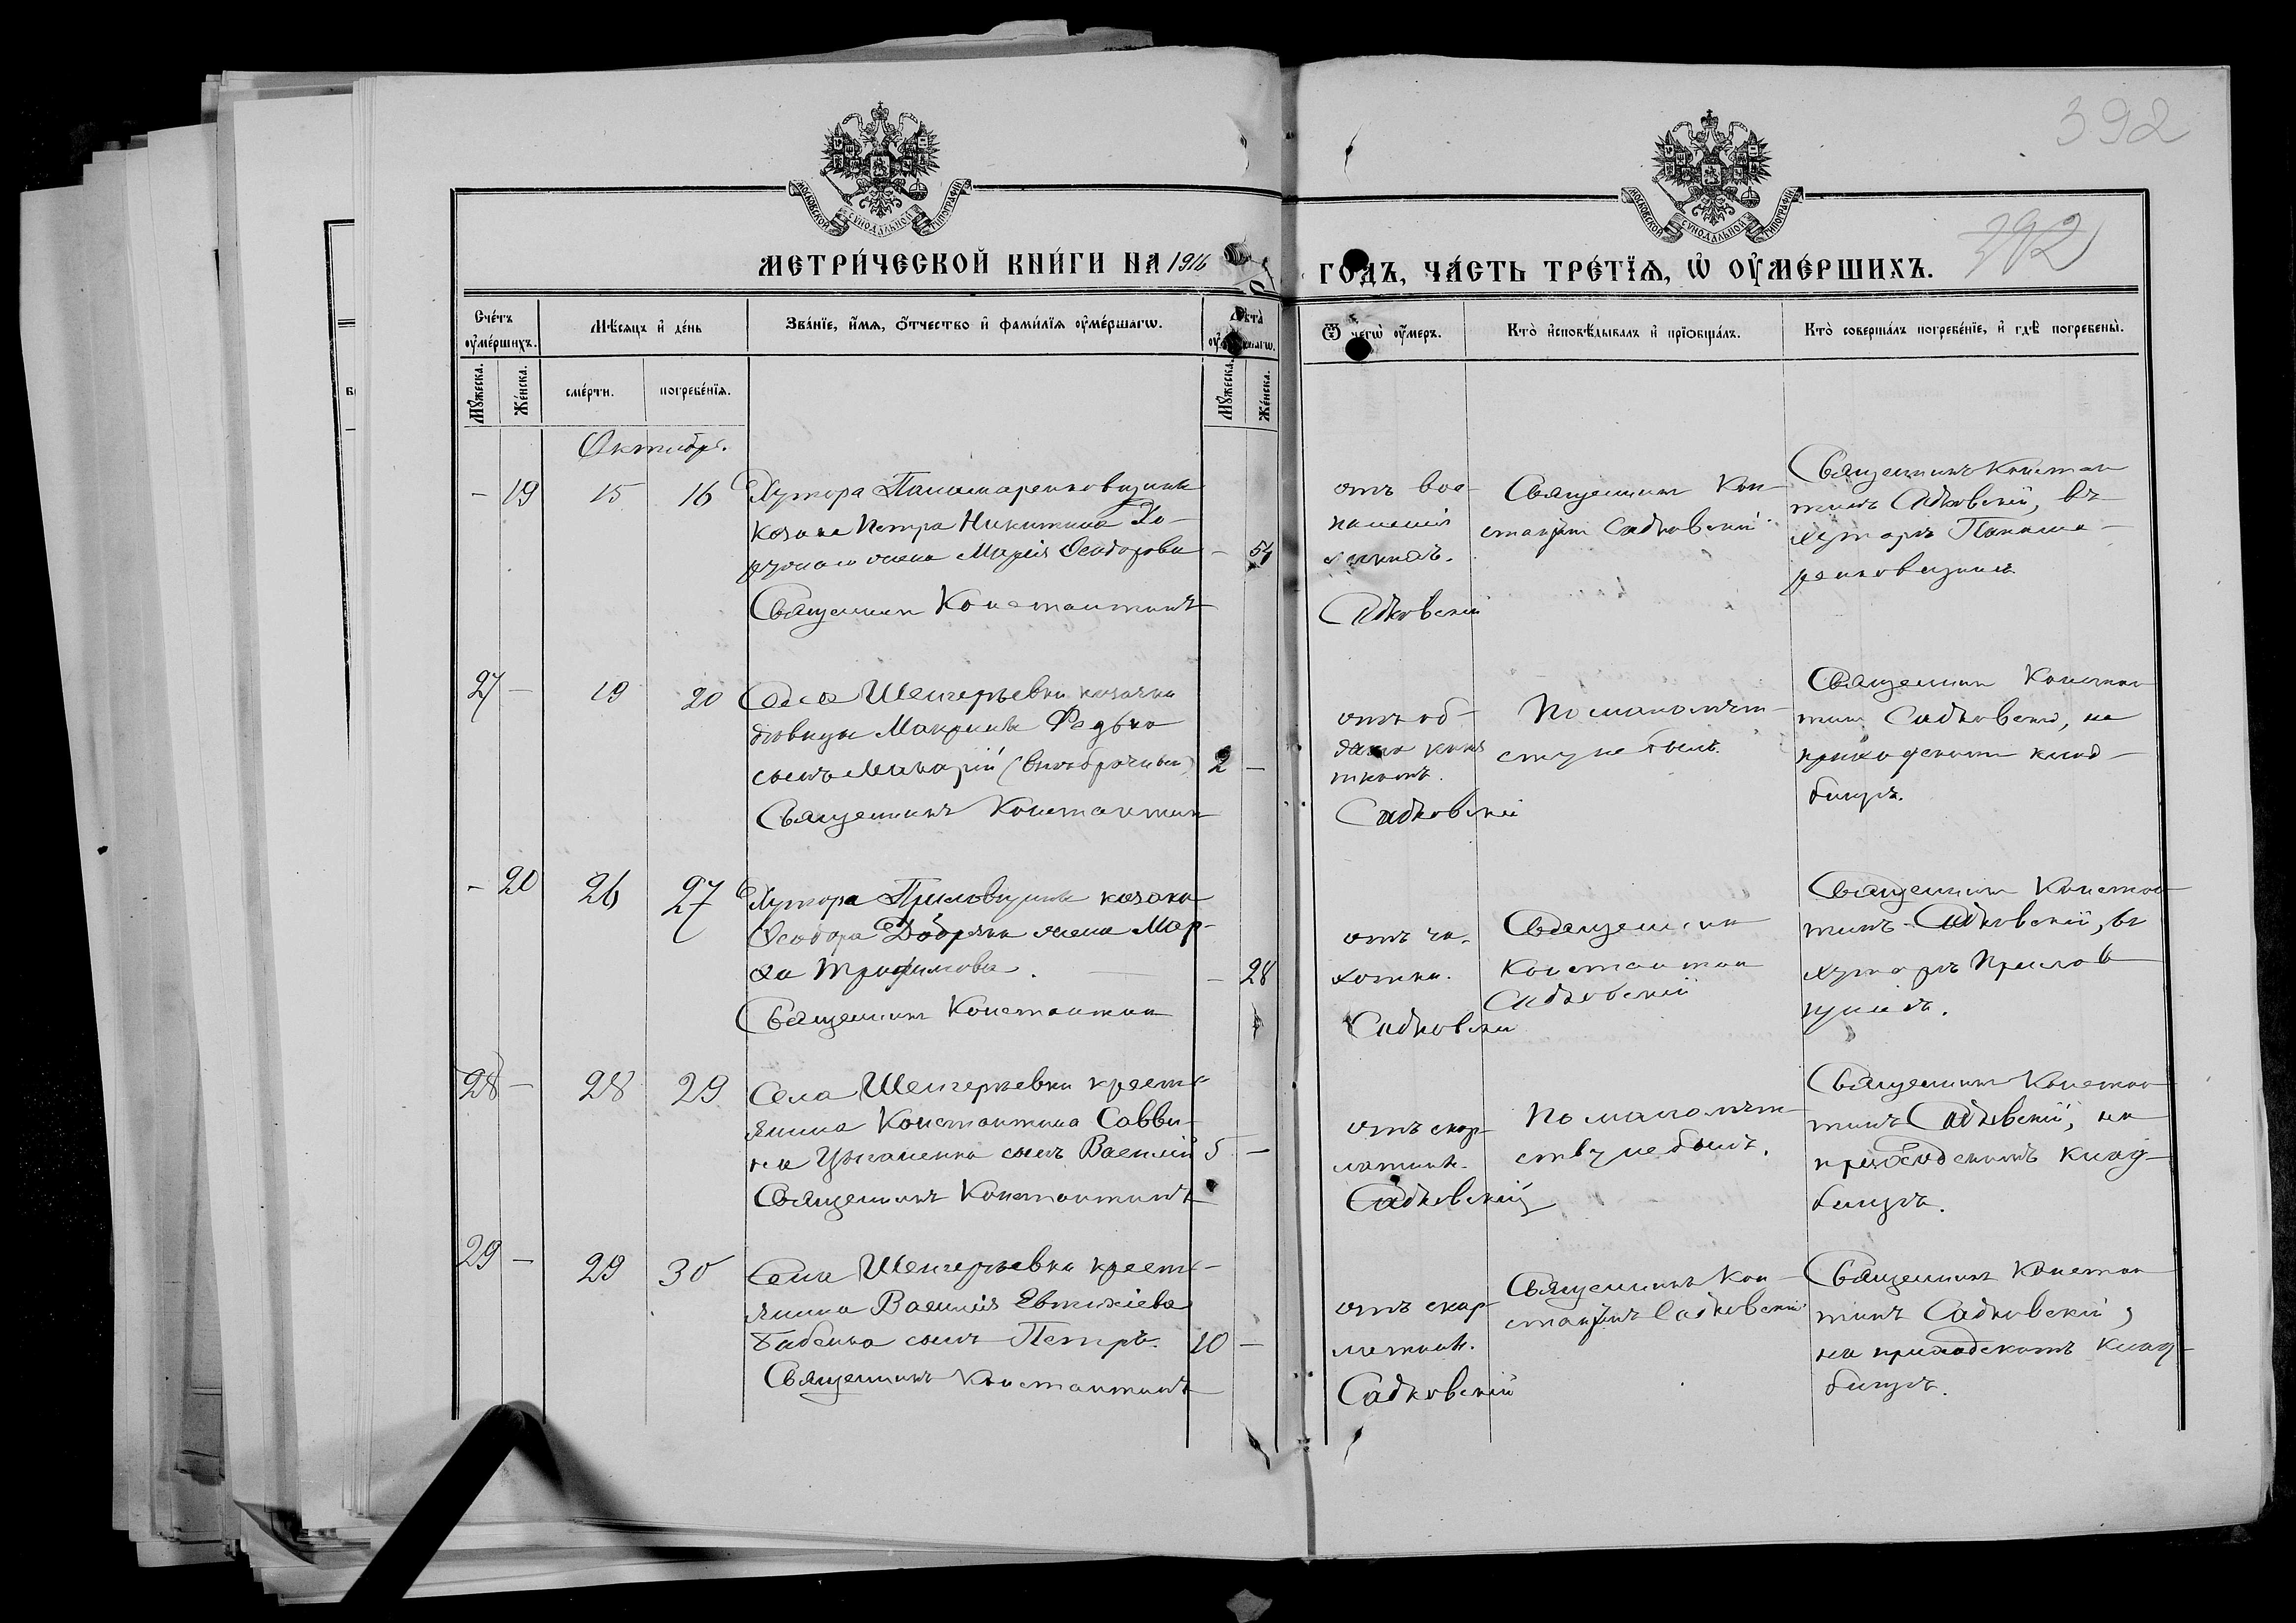 392
392
МОСКОВСКОЙ СУНОДАЛЬНОЙ ТИПОГРАФІИ
МОСКОВСКОЙ СУНОДАЛЬНОЙ ТИПОГРАФІИ
МЕТРИ́ЧЕСКОЙ КНИ́ГИ НА 1916 ГОДЪ, ЧА́СТЬ ТРЕ́ТЇѦ, Ѡ ОУМЕ́РШИХЪ.
Сче́тъ оуме́ршихъ.
Мѣ́сяцъ и де́нь
Зва́нїе, и́мя, о́тчество и фами́лїя оуме́ршагѡ.
Лѣта̀
Ѿ чегѡ̀ оу́меръ.
Кто̀ исповѣ́дывалъ и прїѡбща́лъ.
Кто̀ соверша́лъ погребе́нїе, и гдѣ̀ погребены̀.
Мꙋ́жеска.
Же́нска.
сме́рти.
погребе́нїя.
Мꙋ́жеска.
Же́нска.
Октября.
- 19 15 16
Хутора Панамаренковщины
козака Петра Никитина Хо-
жена Марія Ѳеодорова - 54
Священникъ Константинъ
отъ вос-
паленія
легкихъ.
Садковскій
Священникъ Кон-
стантин Садковскій
Священникъ Констан
тинъ Садковскій, въ
хуторѣ Панама-
ренковщинѣ
27 - 19 20
Села Шенгерѣевки козачки
дѣвицы Макрины Федько
сынъ Макарій (внѣбрачный) 2 -
Священникъ Константин
отъ об-
кипят
комъ.
Садковскій
По малолѣт-
ству не былъ.
Священник Констан
тин Садковскій, на
приходскомъ клад-
бищѣ.
- 20 26 27
Хутора козака
Ѳеодора Добряка жена Мар-
ѳа Трофимова. - 28
Священник Константин
отъ ча-
хотки.
Садковскій
Священник
Константин
Садковскій
Священник Констан
тинъ Садковскій, въ
хуторѣ
28 - 28 29
Села Шенгерѣевки кресть-
янина Константина Савви-
на Цыганенка сынъ Василій 5 -
Священникъ Константинъ
отъ скар-
латины.
Садковскій
По малолѣт-
ству не былъ.
Священник Констан
тинъ Садковскій, на
приходскомъ клад-
бищѣ.
29 - 29 30
Села Шенгерѣевки кресть-
янина Василія Евтихіева
Бабенка сынъ Петръ. 10 -
Священникъ Константинъ
отъ скар-
латины.
Садковскій
Священникъ Кон-
стантинъ Садковскій
Священникъ Констан
тинъ Садковскій,
на приходскомъ клад-
бищѣ.